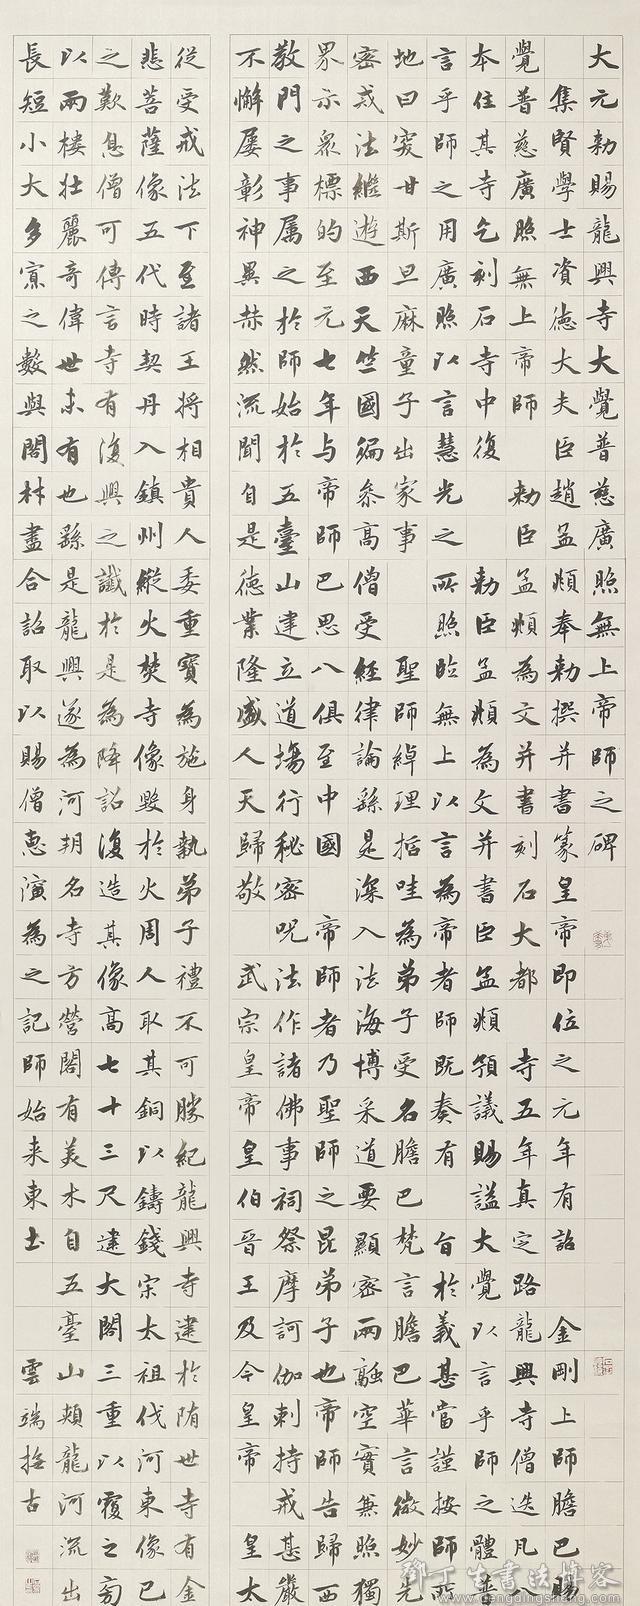 大元勅賜龍興寺大覺普慈廣照無上帝師之碑
集賢學士資德大夫臣趙孟頫奉勅撰并書篆皇帝即位之元年有詔金剛上師膽巴賜
覺普慈廣照無上帝師勅臣孟頫為文并書刻石大都寺五年真定路龍興寺僧迭凡八
本住其寺乞刻石寺中復勅臣孟頫為文并書臣孟頫預議賜謚大覺以言乎師之體普
言乎師之用廣照以言慧光之所照臨無上以言為帝者師既奏有旨於義甚當謹按師所
地曰突甘斯旦麻童子出家事聖師綽理哲哇為弟子受名膽巴梵言膽巴華言微妙先
密或法繼遊西天竺國徧参高僧受經律論繇是深入法海博采道要顯密兩融空實兼照獨
界示眾標的至元七年与帝師巴思八俱至中國帝師者乃聖師之昆弟子也帝師告歸西
教門之事属之於師始於五臺山建立道場行秘密呪法作諸佛事祠祭摩訶伽剌持戒甚嚴
不懈屡彰神異赫然流聞自是德業隆盛人天歸敬武宗皇帝皇伯晉王及今皇帝皇太
從受戒法下至諸王將相貴人委重寶為施身執弟子禮不可勝紀龍興寺建於隋世寺有金
悲菩薩像五代時契丹入鎮州縱火焚寺像毀於火周人取其銅以鑄錢宋太祖伐河東像已
之歎息僧可傳言寺有復興之讖於是為降詔復造其像高七十三尺建大閣三重以覆之旁
以兩樓壯麗奇偉世未有也繇是龍興遂為河朔名寺方營閣有美木自五臺山頰龍河流出
長短小大多寡之數與閣材盡合詔取以賜僧惠演為之記師始来東土雲端撫古
鄧丁生書法博客
www.dengdingsheng.com